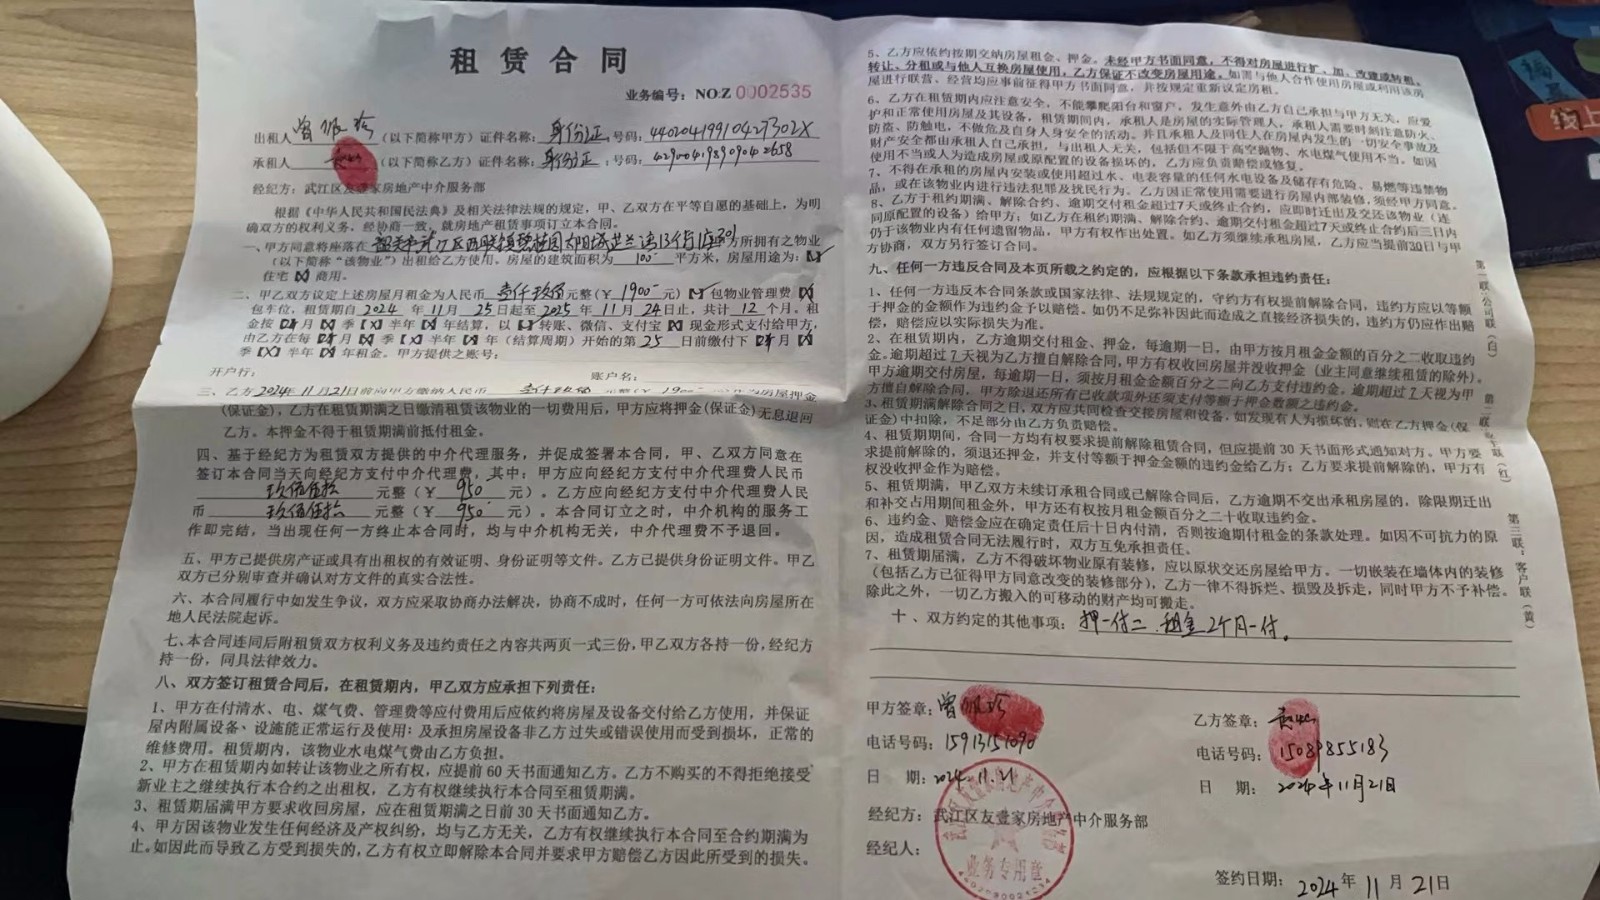 租赁合同
业务编号：NO:Z 0002535
出租人 曾佩玲 （以下简称甲方）证件名称：身份证：号码：44020419910427302X
承租人（以下简称乙方）证件名称：身份证：号码：429004198309042658
经纪方：武江区友壹家房地产中介服务部
根据《中华人民共和国民法典》及相关法律法规的规定，甲、乙双方在平等自愿的基础上，为明
确双方的权利义务、经协商一致，就房地产租赁事项订立本合同。
一、甲方同意将座落在 韶关市武江区西联镇碧桂园太阳城芷兰湾13街1座301 方所拥有之物业
（以下简称“该物业”）出租给乙方使用，房屋的建筑面积为 100 平方米，房屋用途为：【】
住宅【】商用。
二、甲乙双方议定上述房屋月租金为人民币 壹仟玖佰 元整（￥ 1900 元）【】包物业管理费【】
包车位，租赁期自 2024 年 11 月 25 日起至 2025 年 11 月 24 日止，共计 12 个月。租
金按【】月【】季【X】半年【】年结算，以【】转账、微信、支付宝【】现金形式支付给甲方，
由乙方在每【】月【】季【X】半年【】年（结算周期）开始的第 25 日前缴付下【】月【】
季【X】半年【】年租金。甲方提供之账号：
开户行： 账户名：
三、乙方 2024年11月21日前向甲方缴纳人民币 壹仟玖佰 元整（￥ 1900 元）作为房屋押金
(保证金)，乙方在租赁期满之日缴清租赁该物业的一切费用后，甲方应将押金(保证金)无息退回
乙方。本押金不得于租赁期满前抵付租金。
四、基于经纪方为租赁双方提供的中介代理服务，并促成签署本合同，甲、乙双方同意在
签订本合同当天向经纪方支付中介代理费，其中：甲方应向经纪方支付中介代理费人民币
玖佰伍拾 元整（￥ 950 元）。乙方应向经纪方支付中介代理费人民
币 玖佰伍拾 元整（￥ 950 元）。本合同订立之时，中介机构的服务工
作即完结，当出现任何一方终止本合同时，均与中介机构无关，中介代理费不予退回。
五、甲方已提供房产证或具有出租权的有效证明、身份证明等文件。乙方已提供身份证明文件。甲乙
双方已分别审查并确认对方文件的真实合法性。
六、本合同履行中如发生争议，双方应采取协商办法解决，协商不成时，任何一方可依法向房屋所在
地人民法院起诉。
七、本合同连同后附租赁双方权利义务及违约责任之内容共两页一式三份，甲乙双方各持一份，经纪方
持一份，同具法律效力。
八、双方签订租赁合同后，在租赁期内，甲乙双方应承担下列责任：
1、甲方在付清水、电、煤气费、管理费等应付费用后应依约将房屋及设备交付给乙方使用，并保证
屋内附属设备、设施能正常运行及使用；及承担房屋设备非乙方过失或错误使用而受到损坏，正常的
维修费用。租赁期内，该物业水电煤气费由乙方负担。
2、甲方在租赁期内如转让该物业之所有权，应提前60天书面通知乙方。乙方不购买的不得拒绝接受
新业主之继续执行本合约之出租权，乙方有权继续执行本合同至租赁期满。
3、租赁期届满甲方要求收回房屋，应在租赁期满之日前30天书面通知乙方。
4、甲方因该物业发生任何经济及产权纠纷，均与乙方无关，乙方有权继续执行本合同至合约期满为
止。如因此而导致乙方受到损失的，乙方有权立即解除本合同并要求甲方赔偿乙方因此所受到的损失。
5、乙方应依约按期交纳房屋租金、押金。未经甲方书面同意，不得对房屋进行扩、加、改建或转租、
转让、分租或与他人互换房屋使用，乙方保证不改变房屋用途，如需与他人合作使用房屋或利用该房
屋进行联营、经营均应事前征得甲方书面同意，并按规定重新议定房租。
6、乙方在租赁期内应注意安全，不能攀爬阳台和窗户，发生意外由乙方自己承担与甲方无关，应爱
护和正常使用房屋及其设备，租赁期间内，承租人是房屋的实际管理人，承租人需要时刻注意防火、
防盗、防触电，不做危及自身人身安全的活动。并且承租人及同住人在房屋内发生的一切安全事故及
财产安全都由承租人自己承担，与出租人无关，包括但不限于高空抛物、水电煤气使用不当，如因
使用不当或人为造成房屋或原配置的设备损坏的，乙方应负责赔偿或修复。
7、不得在承租的房屋内安装或使用超过水、电表容量的任何水电设备及储存有危险、易燃等违禁物
品，或在该物业内进行违法犯罪及扰民行为。乙方因正常使用需要进行房屋内部装修，须经甲方同意。
8、乙方于租约期满、解除合约、逾期交付租金超过7天或终止合约，应即时迁出及交还该物业（连
同原配置的设备）给甲方；如乙方在租约期满、解除合约、逾期交付租金超过7天或终止合约后三日内
仍于该物业内有任何遗留物品，甲方有权作出处置。如乙方须继续承租房屋，乙方应当提前30日与甲
方协商，双方另行签订合同。
九、任何一方违反合同及本页所载之约定的，应根据以下条款承担违约责任：
1、任何一方违反本合同条款或国家法律、法规规定的，守约方有权提前解除合同，违约方应以等额
于押金的金额作为违约金予以赔偿。如仍不足弥补因此而造成之直接经济损失的，违约方仍应作出赔
偿，赔偿应以实际损失为准。
2、在租赁期内，乙方逾期交付租金、押金，每逾期一日，由甲方按月租金金额的百分之二收取违约
金。逾期超过7天视为乙方擅自解除合同，甲方有权收回房屋并没收押金（业主同意继续租赁的除外）。
甲方逾期交付房屋，每逾期一日，须按月租金金额百分之二向乙方支付违约金。逾期超过7天视为甲
方擅自解除合同，甲方除退还所有已收款项外还须支付等额于押金数额之违约金。
3、租赁期满解除合同之日，双方应共同检查交接房屋和设备，如发现有人为损坏的，则在乙方押金(保
证金)中扣除，不足部分由乙方负责赔偿。
4、租赁期期间，合同一方均有权要求提前解除租赁合同，但应提前30天书面形式通知对方。甲方要
求提前解除的，须退还押金，并支付等额于押金金额的违约金给乙方；乙方要求提前解除的，甲方有
权没收押金作为赔偿。
5、租赁期满，甲乙双方未续订承租合同或已解除合同后，乙方逾期不交出承租房屋的，除限期迁出
和补交占用期间租金外，甲方还有权按月租金额百分之二十收取违约金。
6、违约金、赔偿金应在确定责任后十日内付清，否则按逾期付租金的条款处理。如因不可抗力的原
因，造成租赁合同无法履行时，双方互免承担责任。
7、租赁期届满，乙方不得破坏物业原有装修，应以原状交还房屋给甲方。一切嵌装在墙体内的装修
（包括乙方已征得甲方同意改变的装修部分），乙方一律不得拆烂、损毁及拆走，同时甲方不予补偿。
除此之外，一切乙方搬入的可移动的财产均可搬走。
十、双方约定的其他事项：押一付二，租金2个月一付。
甲方签章：曾佩玲
电话号码：15913151090
日 期：2024.11.21
经纪方：武江区友壹家房地产中介服务部
经纪人：
业务专用章
乙方签章：
电话号码：15089855183
日 期：2024年11月21日
签约日期：2024年11月21日
第一联：公司联（白）
第二联：（红）
第三联：客户联（黄）
线上